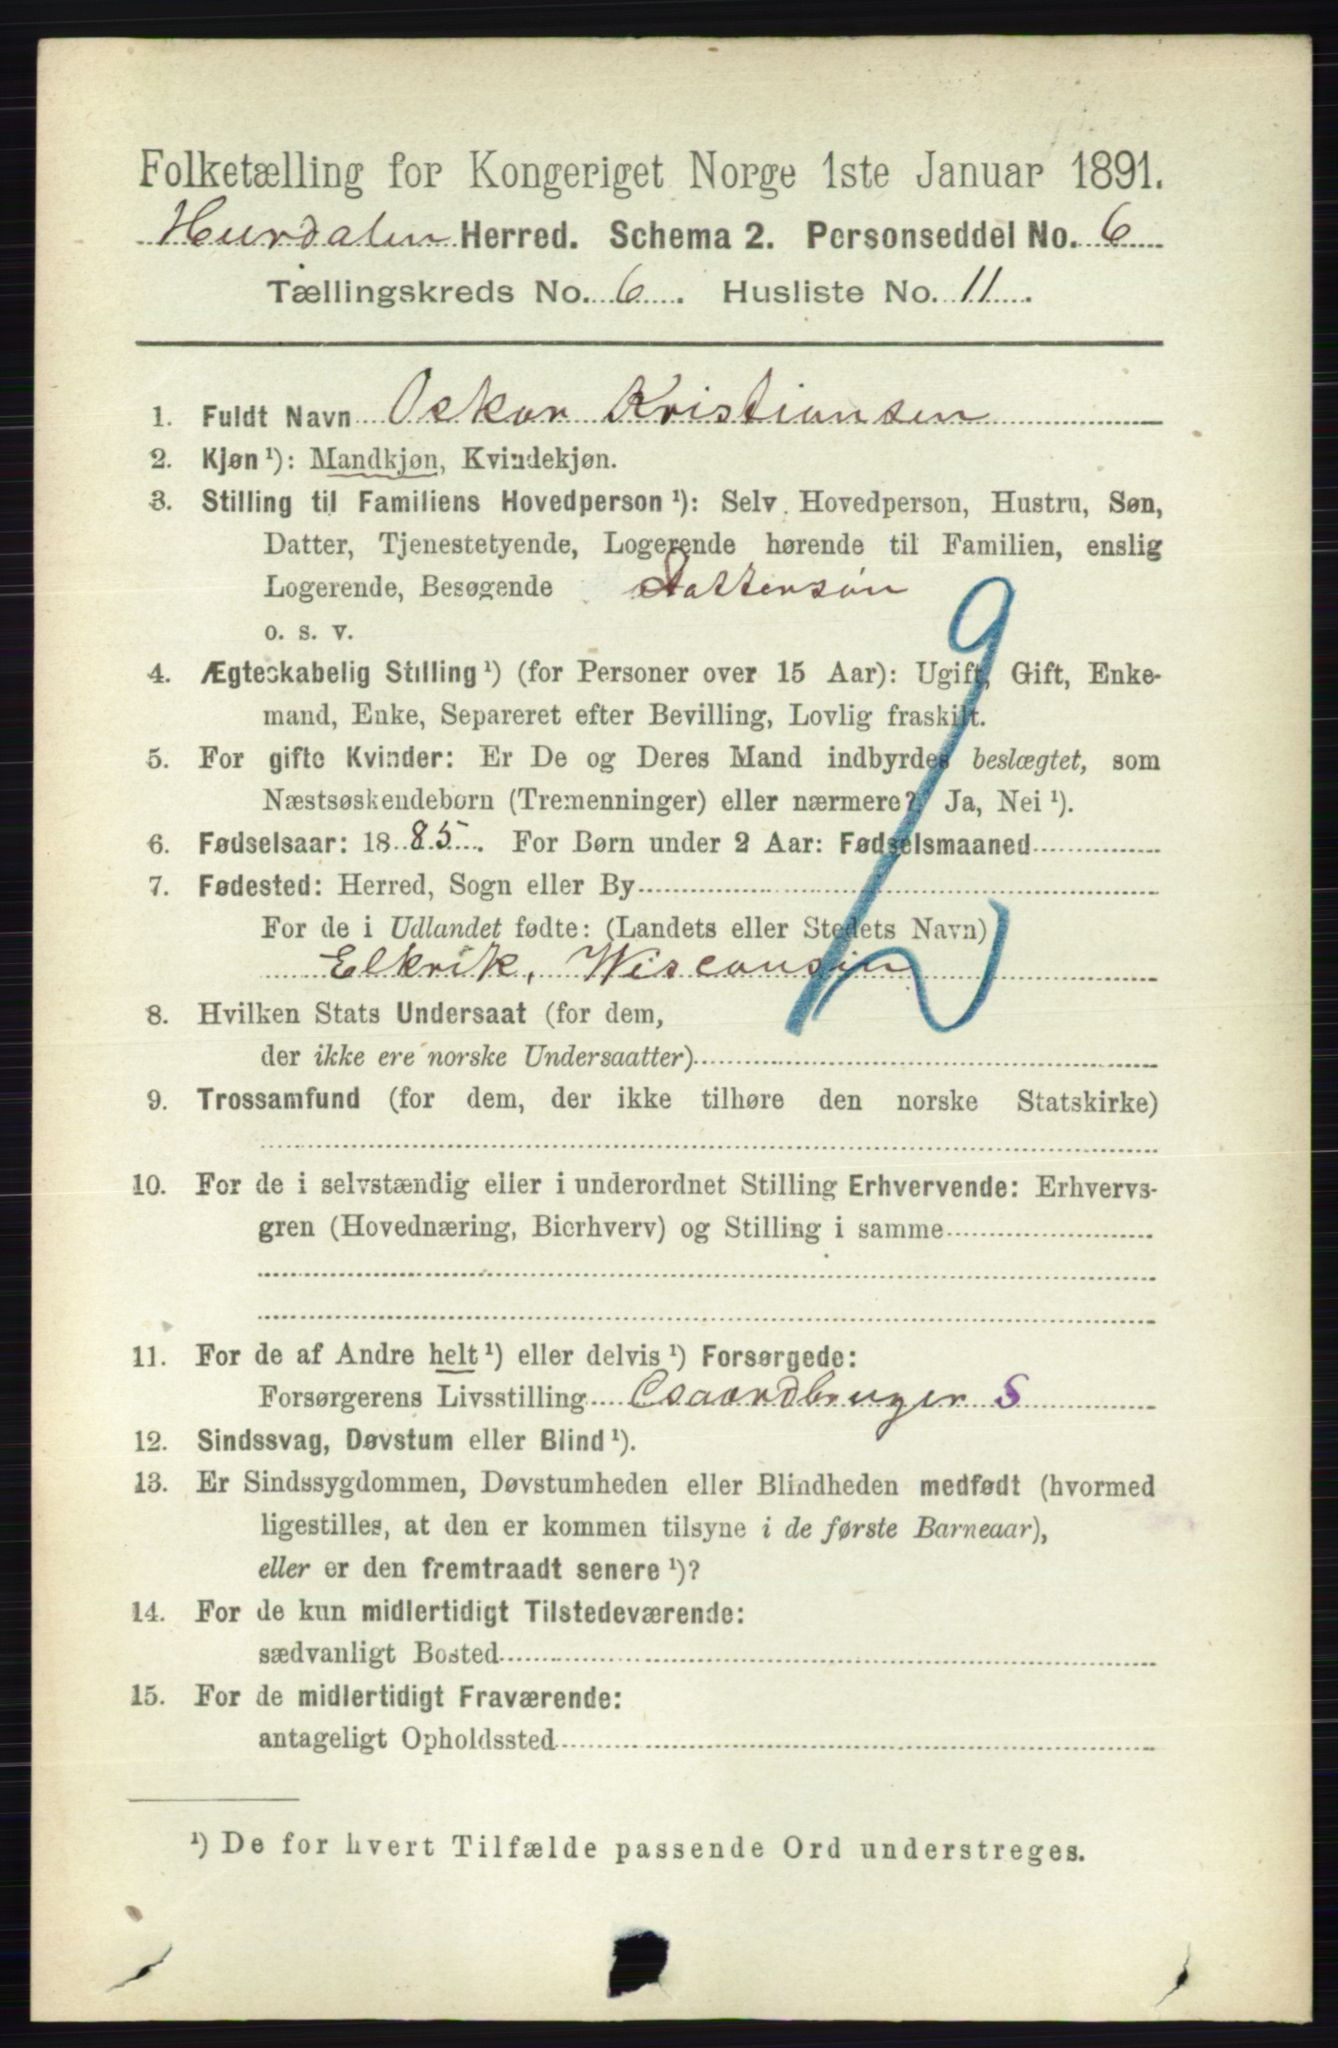 Folketælling for Kongeriget Norge 1ste Januar 1891.
Hurdalen Herred. Schema 2. Personseddel No. 6
Tællingskreds No. 6. Husliste No. 11.
1. Fuldt Navn Oskar Kristiansen
2. Kjøn ¹): Mandkjøn, Kvindekjøn.
3. Stilling til Familiens Hovedperson ¹): Selv Hovedperson, Hustru, Søn,
Datter, Tjenestetyende, Logerende hørende til Familien, enslig
Logerende, Besøgende Dattersøn
o. s. v.
4. Ægteskabelig Stilling ¹) (for Personer over 15 Aar): Ugift, Gift, Enke-
mand, Enke, Separeret efter Bevilling, Lovlig fraskilt.
5. For gifte Kvinder: Er De og Deres Mand indbyrdes beslægtet, som
Næstsøskendebørn (Tremenninger) eller nærmere? Ja, Nei ¹).
6. Fødselsaar: 1885. For Børn under 2 Aar: Fødselsmaaned
7. Fødested: Herred, Sogn eller By
For de i Udlandet fødte: (Landets eller Stedets Navn)
Elkrik, Wisconsin
8. Hvilken Stats Undersaat (for dem,
der ikke ere norske Undersaatter)
9. Trossamfund (for dem, der ikke tilhøre den norske Statskirke)
10. For de i selvstændig eller i underordnet Stilling Erhvervende: Erhvervs-
gren (Hovednæring, Bierhverv) og Stilling i samme
11. For de af Andre helt ¹) eller delvis ¹) Forsørgede:
Forsørgerens Livsstilling Gaardbruger S
12. Sindssvag, Døvstum eller Blind ¹).
13. Er Sindssygdommen, Døvstumheden eller Blindheden medfødt (hvormed
ligestilles, at den er kommen tilsyne i de første Barneaar),
eller er den fremtraadt senere ¹)?
14. For de kun midlertidigt Tilstedeværende:
sædvanligt Bosted
15. For de midlertidigt Fraværende:
antageligt Opholdssted
¹) De for hvert Tilfælde passende Ord understreges.